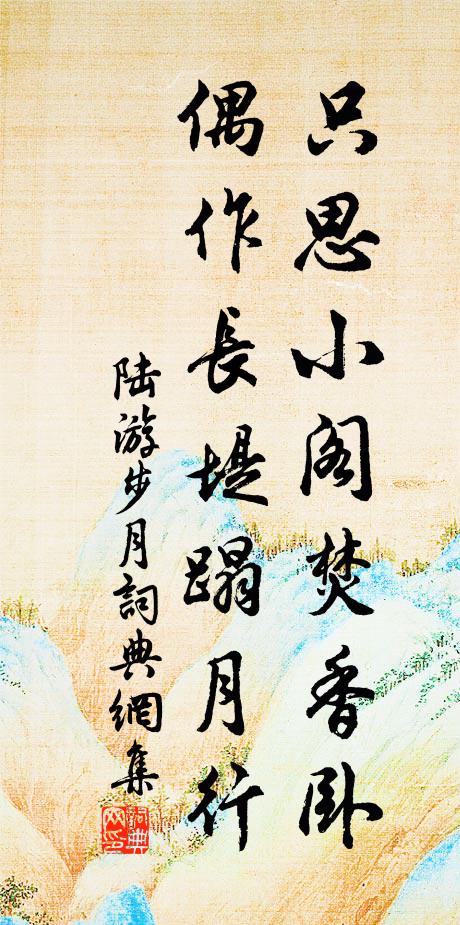 只思小阁焚香卧
偶作長堤蹋月行
陆游步月詞典網集
詞典
网印